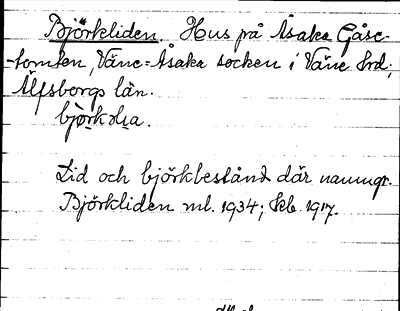 Björkliden. Hus på Åsaka Gåse-
-tomten, Väne-Åsaka socken i Väne hrd,
Älfsborgs län.
Lid och björkbestånd där namngr.
Björkliden ml. 1934; 1917.